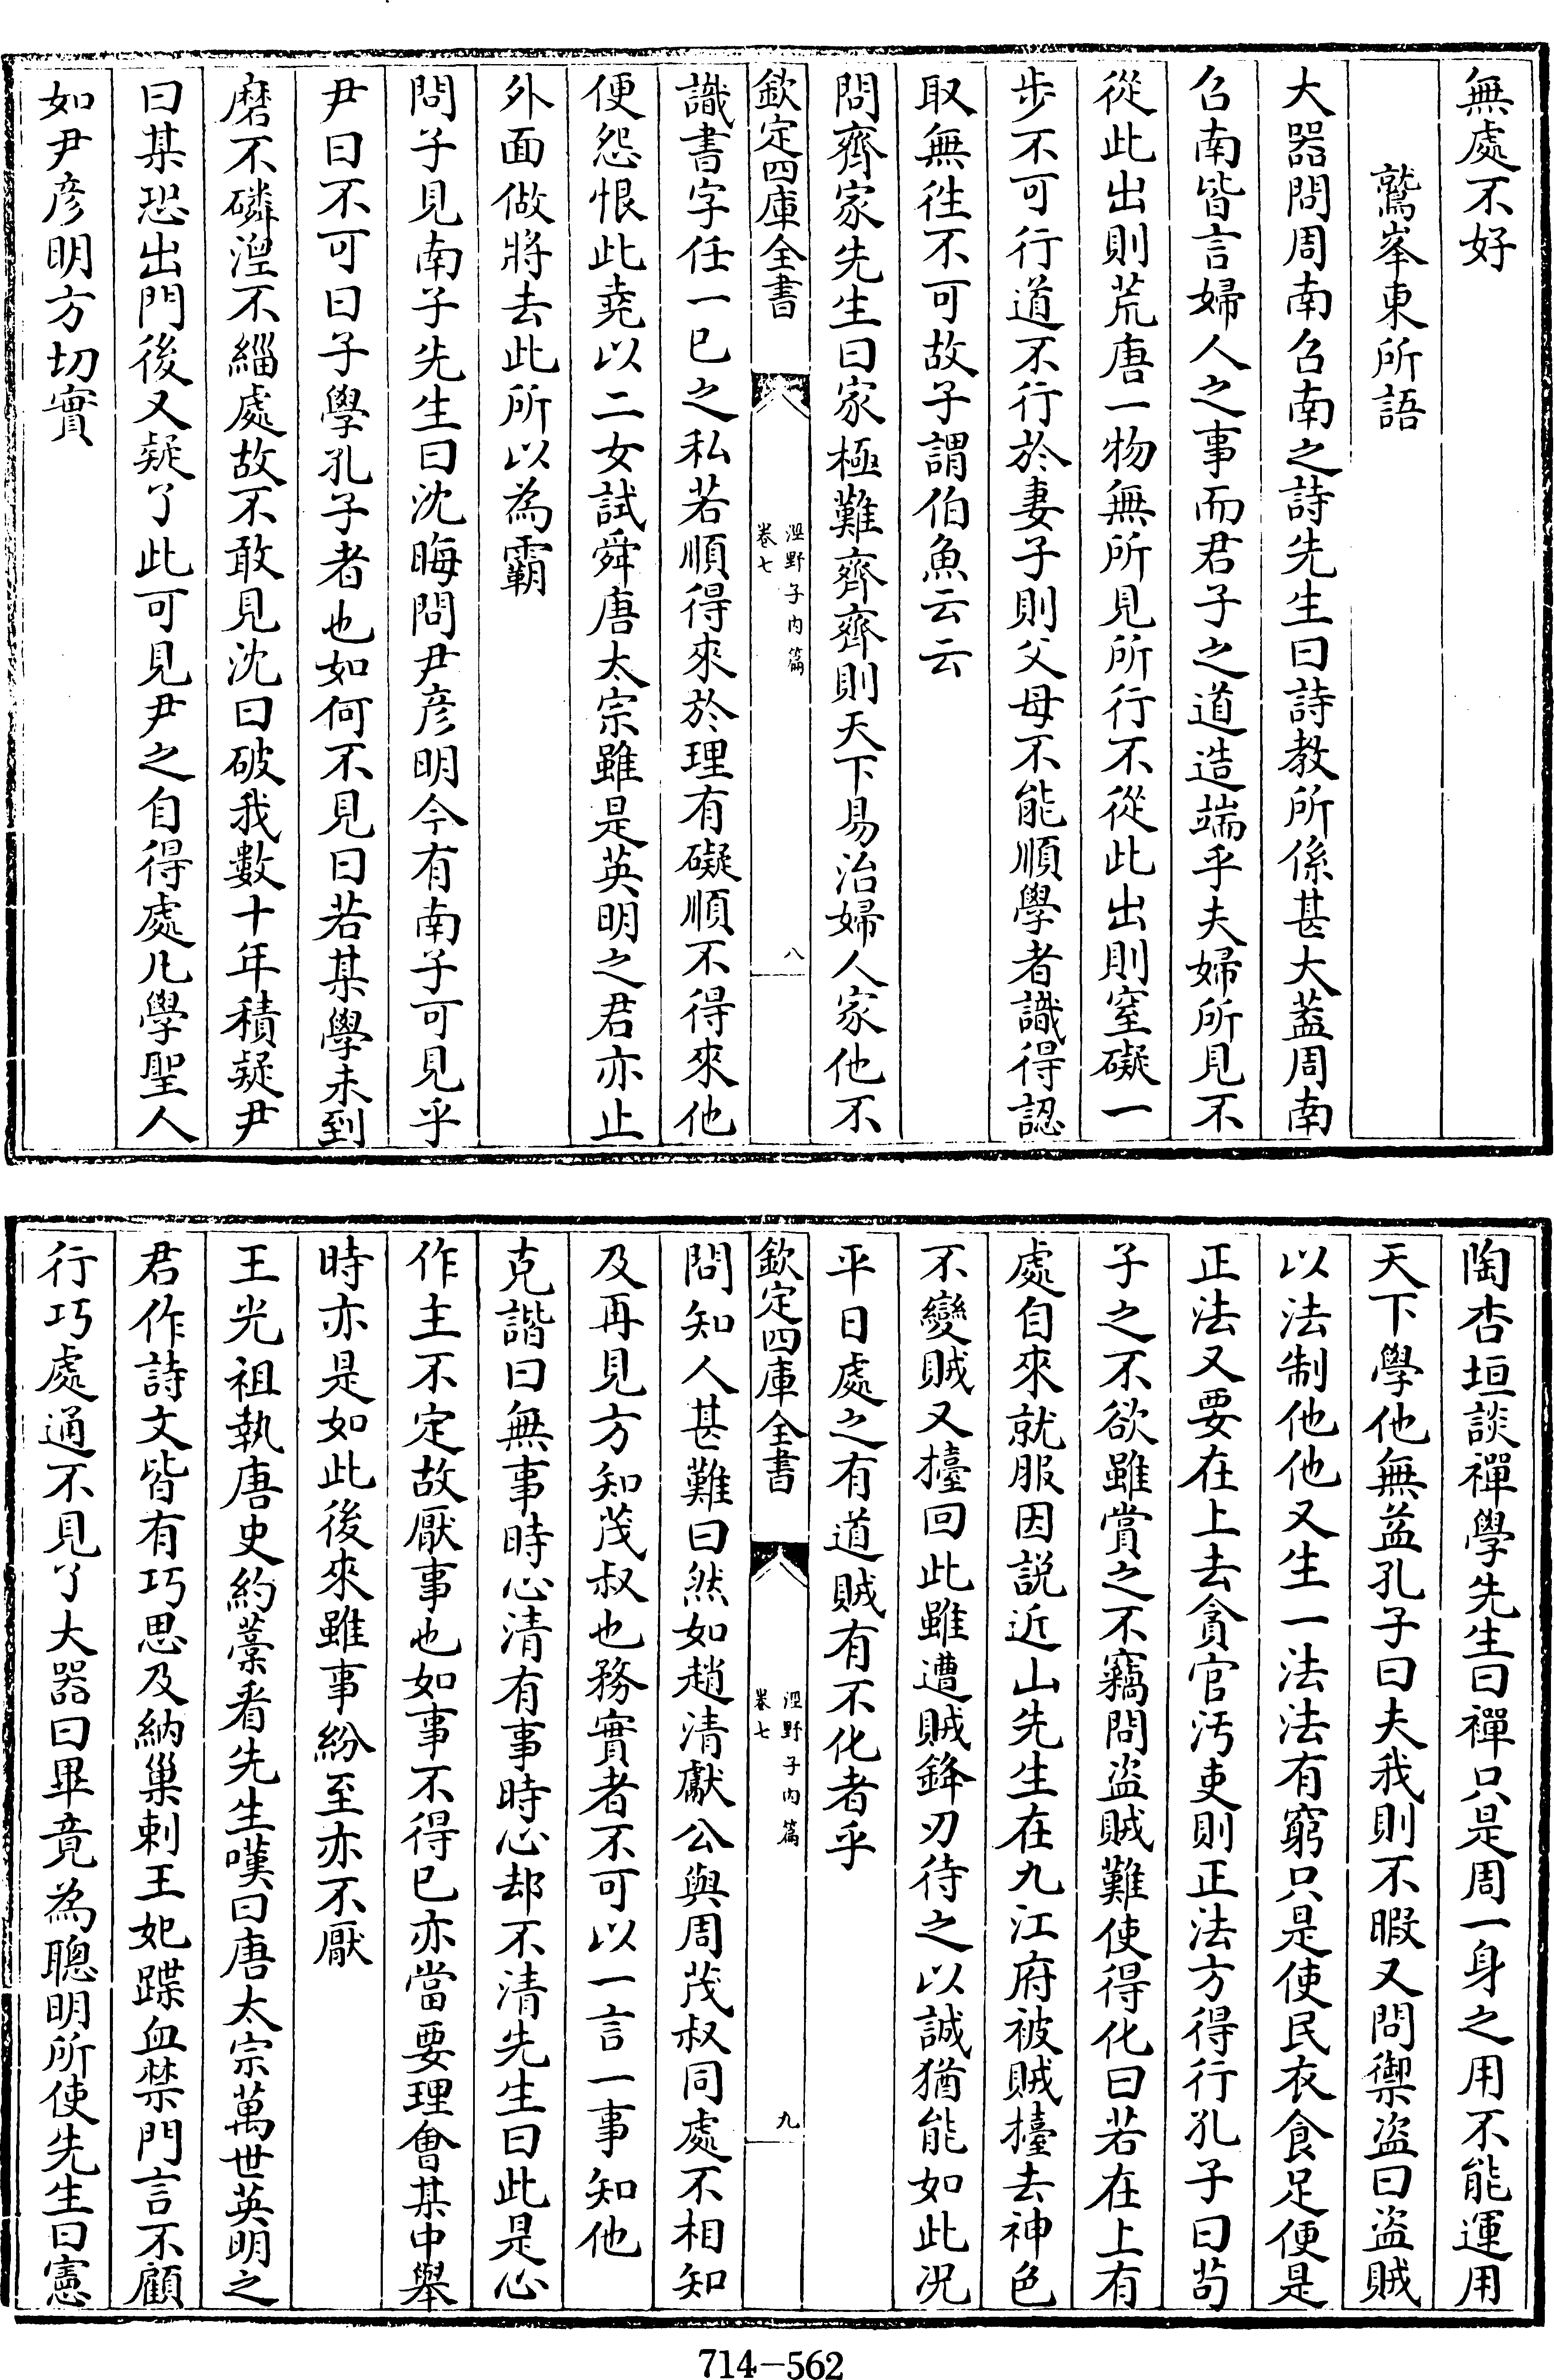 無處不好
鷲峯東所語
大器問周南召南之詩先生曰詩教所係甚大蓋周南
召南皆言婦人之事而君子之道造端乎夫婦所見不
從此出則荒唐一物無所見所行不從此出則窒礙一
步不可行道不行於妻子則父母不能順學者識得認
取無徃不可故子謂伯魚云云
問齊家先生曰家極難齊齊則天下易治婦人家他不
欽定四庫全書
涇野子内篇
卷七
八
識書字任一已之私若順得來於理有礙順不得來他
便怨恨此堯以二女試舜唐太宗雖是英明之君亦止
外面做將去此所以為霸
問子見南子先生曰沈晦問尹彦明今有南子可見乎
尹曰不可曰子學孔子者也如何不見曰若某學未到
磨不磷湼不緇處故不敢見沈曰破我數十年積疑尹
曰某恐出門後又疑了此可見尹之自得處凡學聖人
如尹彦明方切實
陶杏垣談禪學先生曰禪只是周一身之用不能運用
天下學他無益孔子曰夫我則不暇又問禦盜曰盜賊
以法制他他又生一法法有窮只是使民衣食足便是
正法又要在上去貪官汚吏則正法方得行孔子曰苟
子之不欲雖賞之不竊問盜賊難使得化曰若在上有
處自來就服因説近山先生在九江府被賊擡去神色
不變賊又擡回此雖遭賊鋒刃待之以誠猶能如此况
平日處之有道賊有不化者乎
欽定四庫全書
涇野子内篇
卷七
九
問知人甚難曰然如趙清獻公與周茂叔同處不相知
及再見方知茂叔也務實者不可以一言一事知他
克諧曰無事時心清有事時心却不清先生曰此是心
作主不定故厭事也如事不得已亦當要理會某中舉
時亦是如此後來雖事紛至亦不厭
王光祖執唐史約藁看先生嘆曰唐太宗萬世英明之
君作詩文皆有巧思及納巢剌王妃蹀血禁門言不顧
行巧處通不見了大器曰畢竟為聰明所使先生曰憲
714—562